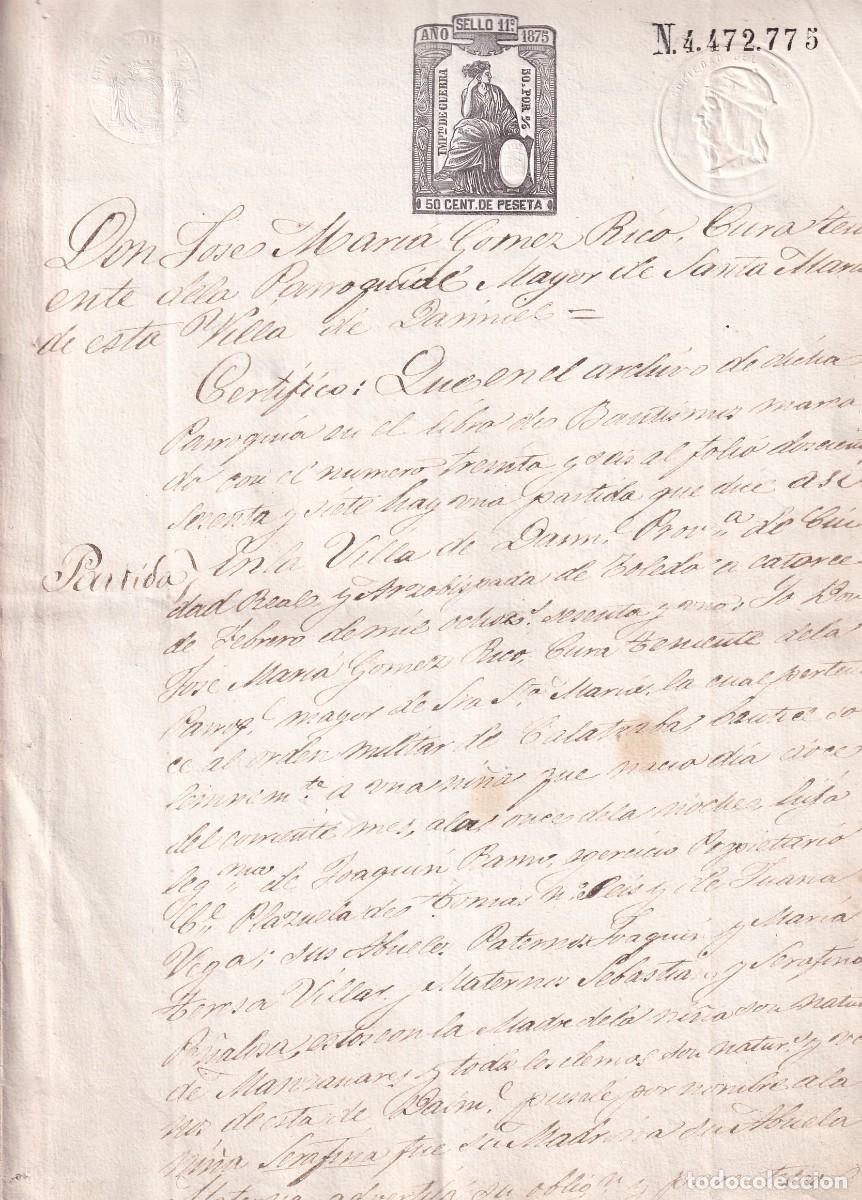 SELLO 11º
AÑO 1875
N.4.472.775
IMPTO DE GUERRA
50. POR %
50 CENT. DE PESETA
Don Jose María Gomez Rico, Cura teni
ente dela Parroquial Mayor de Santa Maria
de esta Villa de Daimiel =
Certifico: Que en el archivo de dicha
Parroquia en el libro de Bautismos marca
do con el numero treinta y seis al folio doscientos
sesenta y siete hay una partida que dice asi
Partida
En la Villa de Daim.l Prov.a de Ciu
dad Real y Arzobispado de Toledo a catorce
de Febrero de mil ochoz.s sesenta y uno: Yo Don
José María Gomez Rico, Cura teniente dela
Parroq.l mayor de Sta María, la cual pertene
ce al orden militar de Calatraba, bauticé so
lemnem.te a una niña que nació día doce
del corriente mes, alas once dela noche, hija
leg.ma de Joaquin Ramo, egercicio Propietario
C.e Plazuela de Tomas n.o Seis y de Juana
Vega; sus Abuelos Paternos Joaquin y María
teresa Villar y Maternos Sebastian y Serafina
Peñalosa, estos con la Madre dela niña son natur
de Manzanares y todos los demos son natur.s y veci
nos de esta de Daim.l pusele por nombre a la
niña Serafina fue su Madrina su Abuela
Materna advertila su oblig.n y
todocoleccion